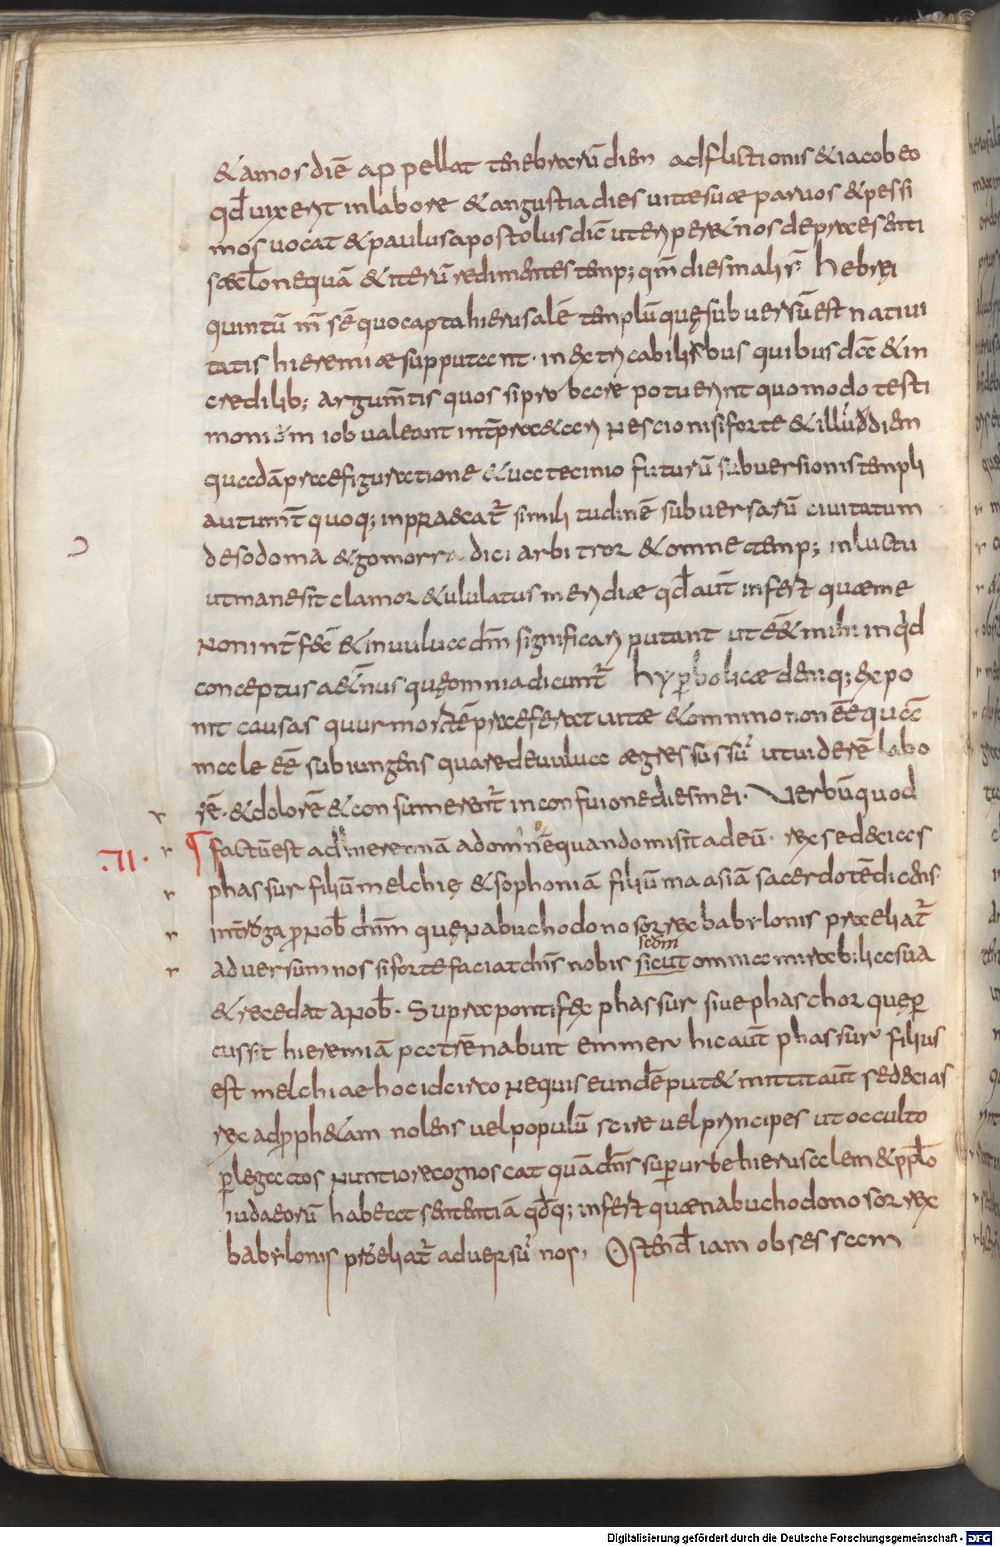 & amos diē appellat tenebrarū diem adflictionis & iacob eo
qđ vixerit in labore & angustia dies vitae suae parvos & pessi
mos vocat & paulus apostolus dic̄ ut eriper& nos de praesenti
sc̄lo nequā & iterū redimentes temp; qm̄ dies mali s̄ hebręi
quintū m̄sē quo capta hierusalē templū quę subversū est nativi
tatis hieremiae supputant · in execrabilibus quibusdā & in
credilib; argum̄tis quos si probare potuerint quomodo testi
monium iob valeant int̄pr&ari nescio nisi forte & illū diem
quadā praefiguratione & vaticinio futurū subversionis templi
autum̄t quoq; in praecat̄ similitudinē subversarū civitatum
de sodoma & gomorra dici arbitror & omne temp; in luctu
ut mane sit clamor & ululatus meridiae qđ aut̄ infert quae me
non int̄fēc & in vulva dm̄ significari putant ut eē& mihi in q̄d
conceptus aet̄nus quę omnia dicunt̄ hyꝑbolicae deniq; expo
nit causas quur mortē praeferat vitae & omnino non eē quā
male eē subiungens quare de vulva aegressus sū ut viderē labo
rē · & dolorē & consumerent̄ in confuione dies mei · Verbū quod
.VI. factū est ad hieremiā a domino quando misit ad eū · rex sedecias
phassur filiū melchię & sophoniā filiū maasiā sacerdotē dicens
int̄roga ꝓ nob̄ dnm̄ quę nabuchodonosor rex babylonis praeliat̄
adversum nos si forte faciat dn̄s nobis sicut omnia mirabilia sua
scdm
& recedat a nob̄ · Supra pontifex phassur sive phaschor quę ꝑ
cussit hieremiā patrē nabuit emmer hic aut̄ phassur filius
est melchiae hoc idcirco ne quis eundē put& mittit aut̄ sedecias
rex ad ꝓph&am nolens vel populū scire vel principes ut occulto
ꝑ legatos nuntio recognoscat quā dn̄s suꝑ urbe hierusalem & ppło
iudaeorū habeat sententiā qđq; infert quae nabuchodonosor rex
babylonis proeliat̄ adversū nos, Ostend̄ iam obsessam
Digitalisierung gefördert durch die Deutsche Forschungsgemeinschaft - DFG